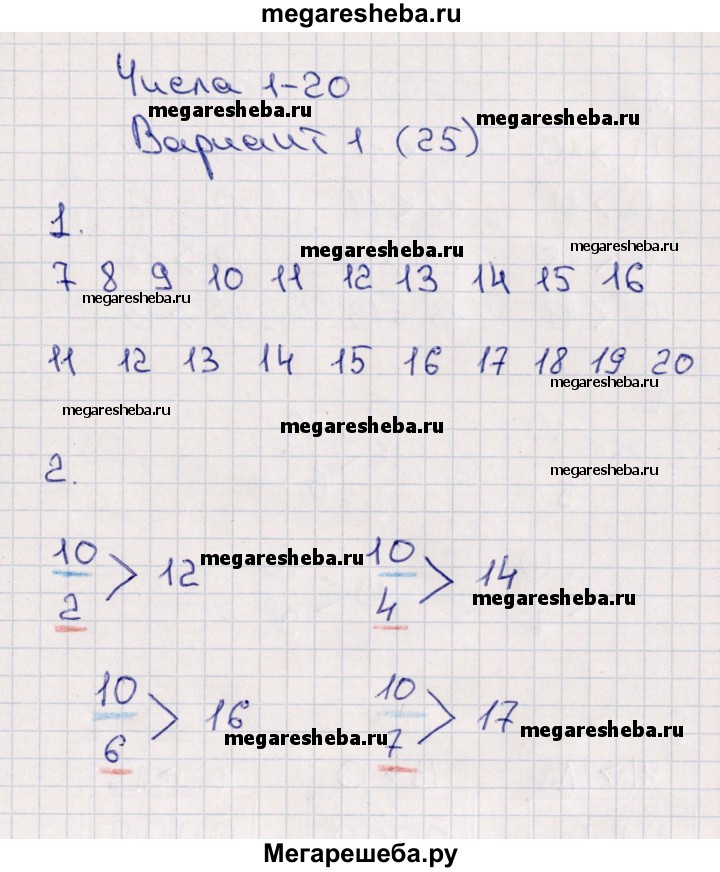 megaresheba.ru
Числа 1-20
megaresheba.ru
megaresheba.ru
Вариант 1 (25)
1.
megaresheba.ru
megaresheba.ru
7 8 9 10 11 12 13 14 15 16
megaresheba.ru
11 12 13 14 15 16 17 18 19 20
megaresheba.ru
megaresheba.ru
megaresheba.ru
2.
megaresheba.ru
10 10
> 12 > 14
megaresheba.ru
2 4
megaresheba.ru
10 10
> 16 > 17
megaresheba.ru
megaresheba.ru
6 7
Мегарешеба.ру